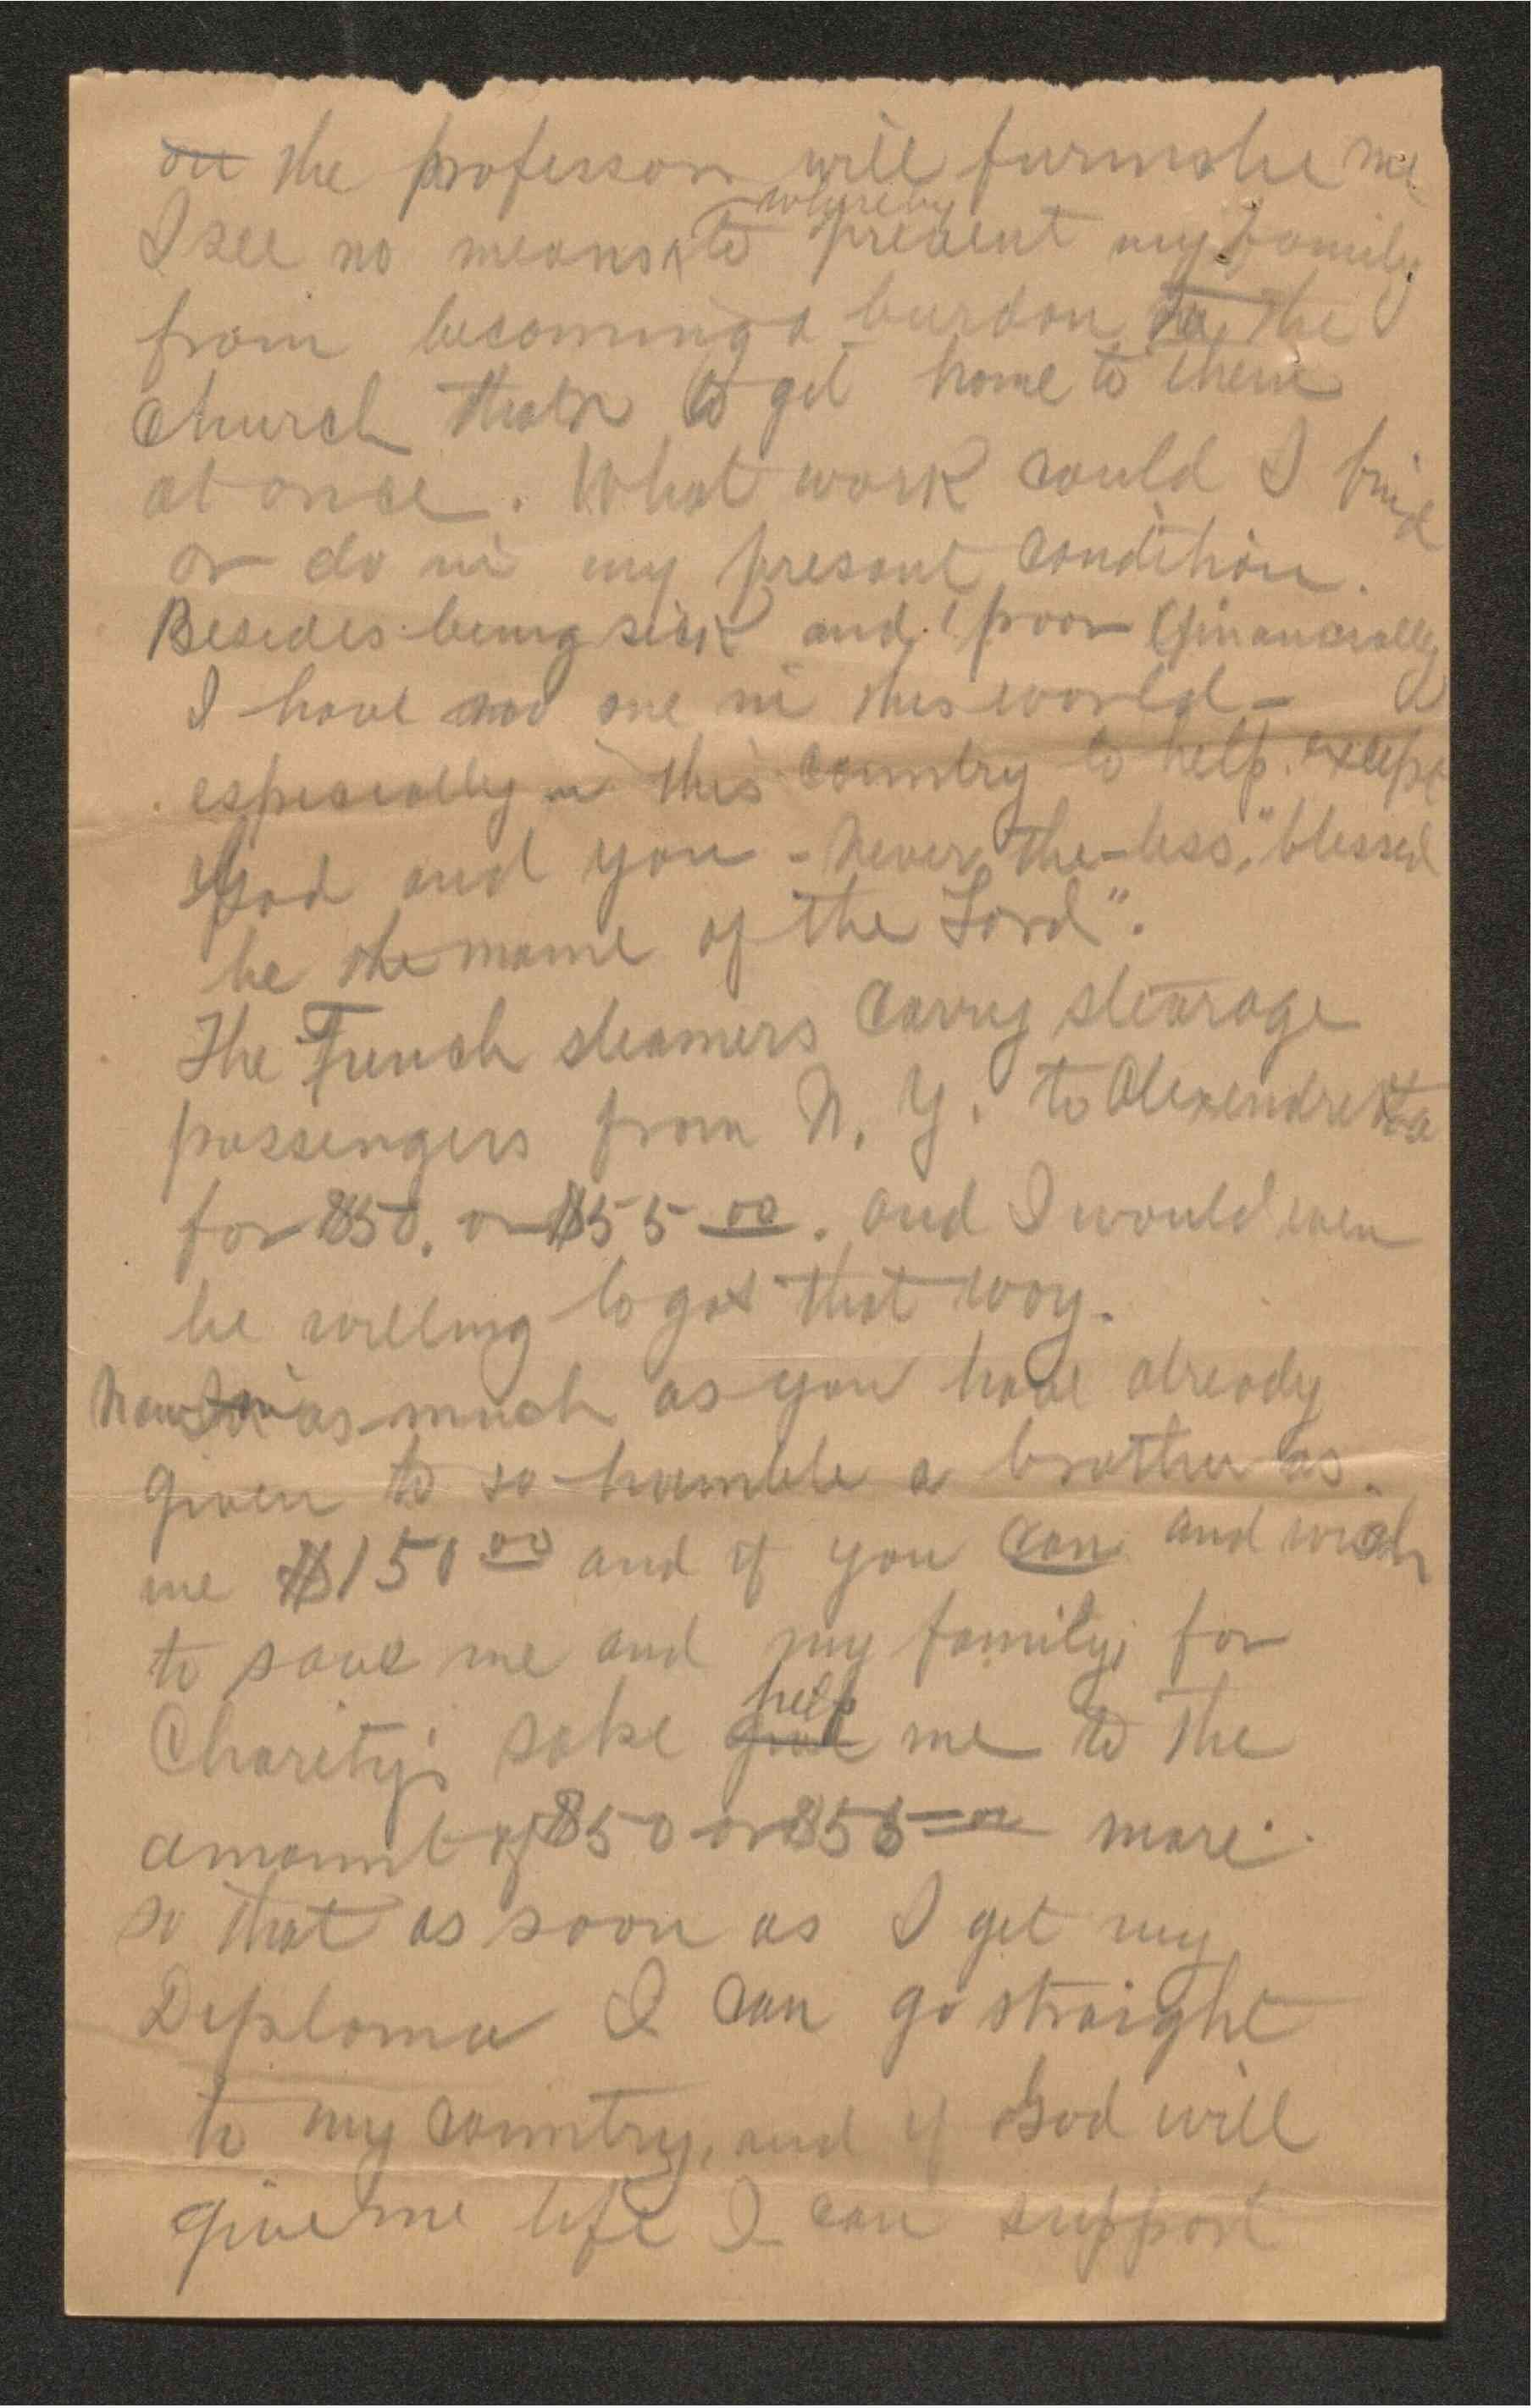 all the professor will furnishe me
I see no means whereby to prevent my family
from becoming a burdon to the
Church than to get home to them
at once. What work could I find
or do in my present condition.
Besides being sick and poor (financially)
I have no one in this world -
especially in this country to help. except
God and you - never-the-less, "blessed
be the name of the Lord".
The French steamers carry stearage
passengers from N. Y. to Alexendretta
for $50. or $55 00. and I would even
be willing to go that way.
Now in as much as you have already
given to so humble a brother as
me $150 00 and if you can and wish
to save me and my family, for
Charity's sake help me to the
amount of $50 or $55 00 more.
so that as soon as I get my
Diploma I can go straight
to my country, and if God will
give me life I can support